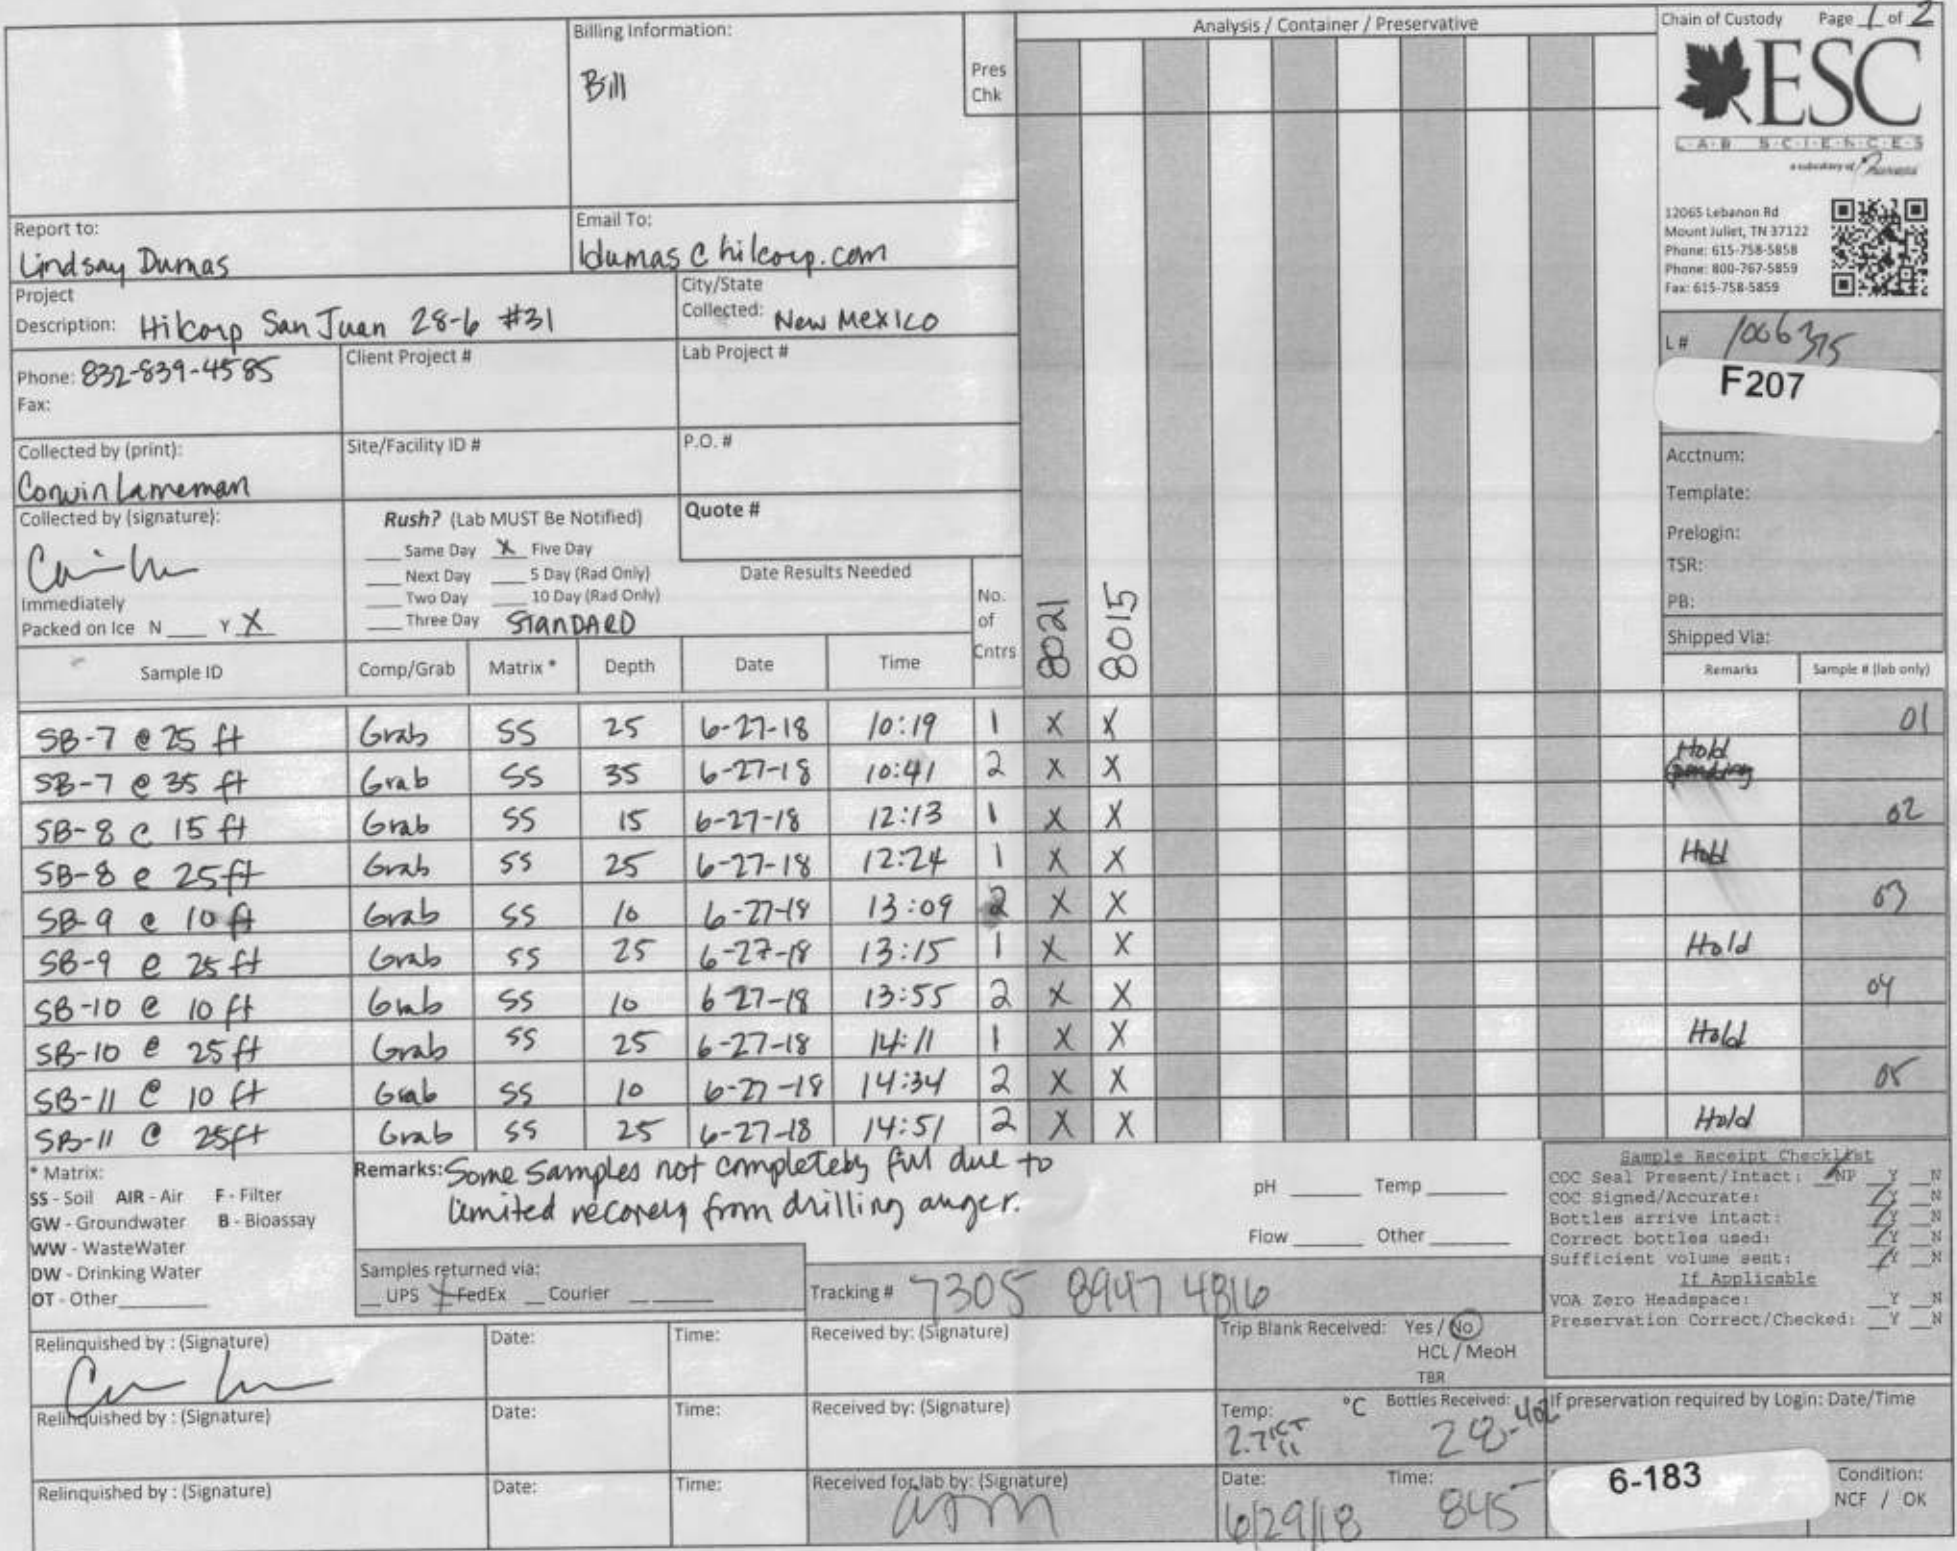 Billing Information:
Bill
Pres
Chk
Analysis / Container / Preservative
Chain of Custody Page 1 of 2
ESC
L·A·B S·C·I·E·N·C·E·S
a subsidiary of
12065 Lebanon Rd
Mount Juliet, TN 37122
Phone: 615-758-5858
Phone: 800-767-5859
Fax: 615-758-5859
Report to:
Lindsay Dumas
Email To:
ldumas@hilcorp.com
Project
Description: Hilcorp San Juan 28-6 #31
City/State
Collected: New Mexico
L # 1006375
F207
Phone: 832-839-4585
Fax:
Client Project #
Lab Project #
Collected by (print):
Corwin Lameman
Site/Facility ID #
P.O. #
Acctnum:
Template:
Prelogin:
TSR:
PB:
Shipped Via:
Collected by (signature):
Immediately
Packed on Ice N ___ Y X
Rush? (Lab MUST Be Notified)
___ Same Day X Five Day
___ Next Day ___ 5 Day (Rad Only)
___ Two Day ___ 10 Day (Rad Only)
___ Three Day STANDARD
Quote #
Date Results Needed
No.
of
Cntrs
8021
8015
Sample ID Comp/Grab Matrix * Depth Date Time Remarks Sample # (lab only)
SB-7 @ 25 ft Grab SS 25 6-27-18 10:19 1 X X 01
SB-7 @ 35 ft Grab SS 35 6-27-18 10:41 2 X X Hold
SB-8 @ 15 ft Grab SS 15 6-27-18 12:13 1 X X 02
SB-8 @ 25 ft Grab SS 25 6-27-18 12:24 1 X X Hold
SB-9 @ 10 ft Grab SS 10 6-27-18 13:09 2 X X 03
SB-9 @ 25 ft Grab SS 25 6-27-18 13:15 1 X X Hold
SB-10 @ 10 ft Grab SS 10 6 27-18 13:55 2 X X 04
SB-10 @ 25 ft Grab SS 25 6-27-18 14:11 1 X X Hold
SB-11 @ 10 ft Grab SS 10 6-27-18 14:34 2 X X 05
SB-11 @ 25ft Grab SS 25 6-27-18 14:51 2 X X Hold
* Matrix:
SS - Soil AIR - Air F - Filter
GW - Groundwater B - Bioassay
WW - WasteWater
DW - Drinking Water
OT - Other
Remarks: Some samples not completely full due to
limited recovery from drilling auger.
pH ___ Temp ___
Flow ___ Other ___
Sample Receipt Checklist
COC Seal Present/Intact: __NP __Y __N
COC Signed/Accurate: __Y __N
Bottles arrive intact: __Y __N
Correct bottles used: __Y __N
Sufficient volume sent: __Y __N
If Applicable
VOA Zero Headspace: __Y __N
Preservation Correct/Checked: __Y __N
Samples returned via:
__ UPS X FedEx __ Courier ___
Tracking # 7305 8947 4816
Relinquished by : (Signature) Date: Time: Received by: (Signature)
Trip Blank Received: Yes / No
HCL / MeoH
TBR
Relinquished by : (Signature) Date: Time: Received by: (Signature)
Temp: °C Bottles Received:
28-402
If preservation required by Login: Date/Time
Relinquished by : (Signature) Date: Time: Received for lab by: (Signature)
Date: 6/29/18 Time: 845
6-183
Condition:
NCF / OK